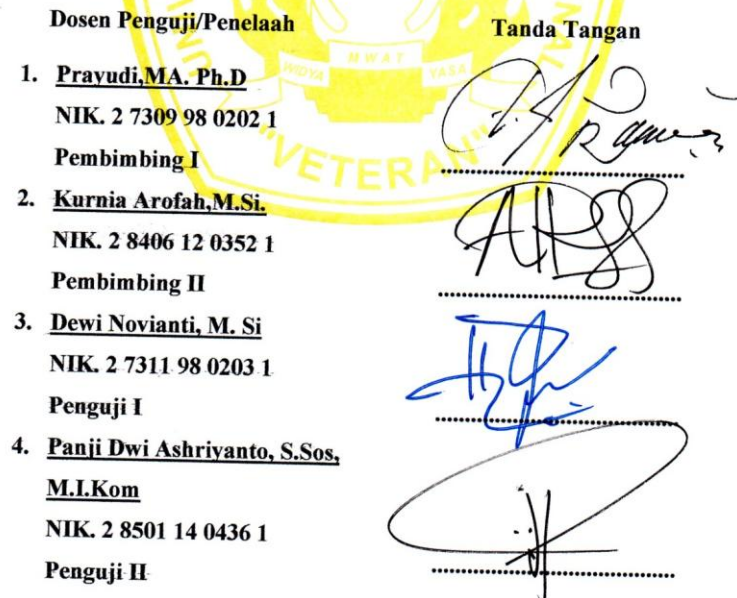 Dosen Penguji/Penelaah
Tanda Tangan
WIDYA MWAT YASA
"VETERAN"
1. Prayudi,MA. Ph.D
NIK. 2 7309 98 0202 1
Pembimbing I
2. Kurnia Arofah,M.Si.
NIK. 2 8406 12 0352 1
Pembimbing II
3. Dewi Novianti, M. Si
NIK. 2 7311 98 0203 1
Penguji I
4. Panji Dwi Ashriyanto, S.Sos,
M.I.Kom
NIK. 2 8501 14 0436 1
Penguji II